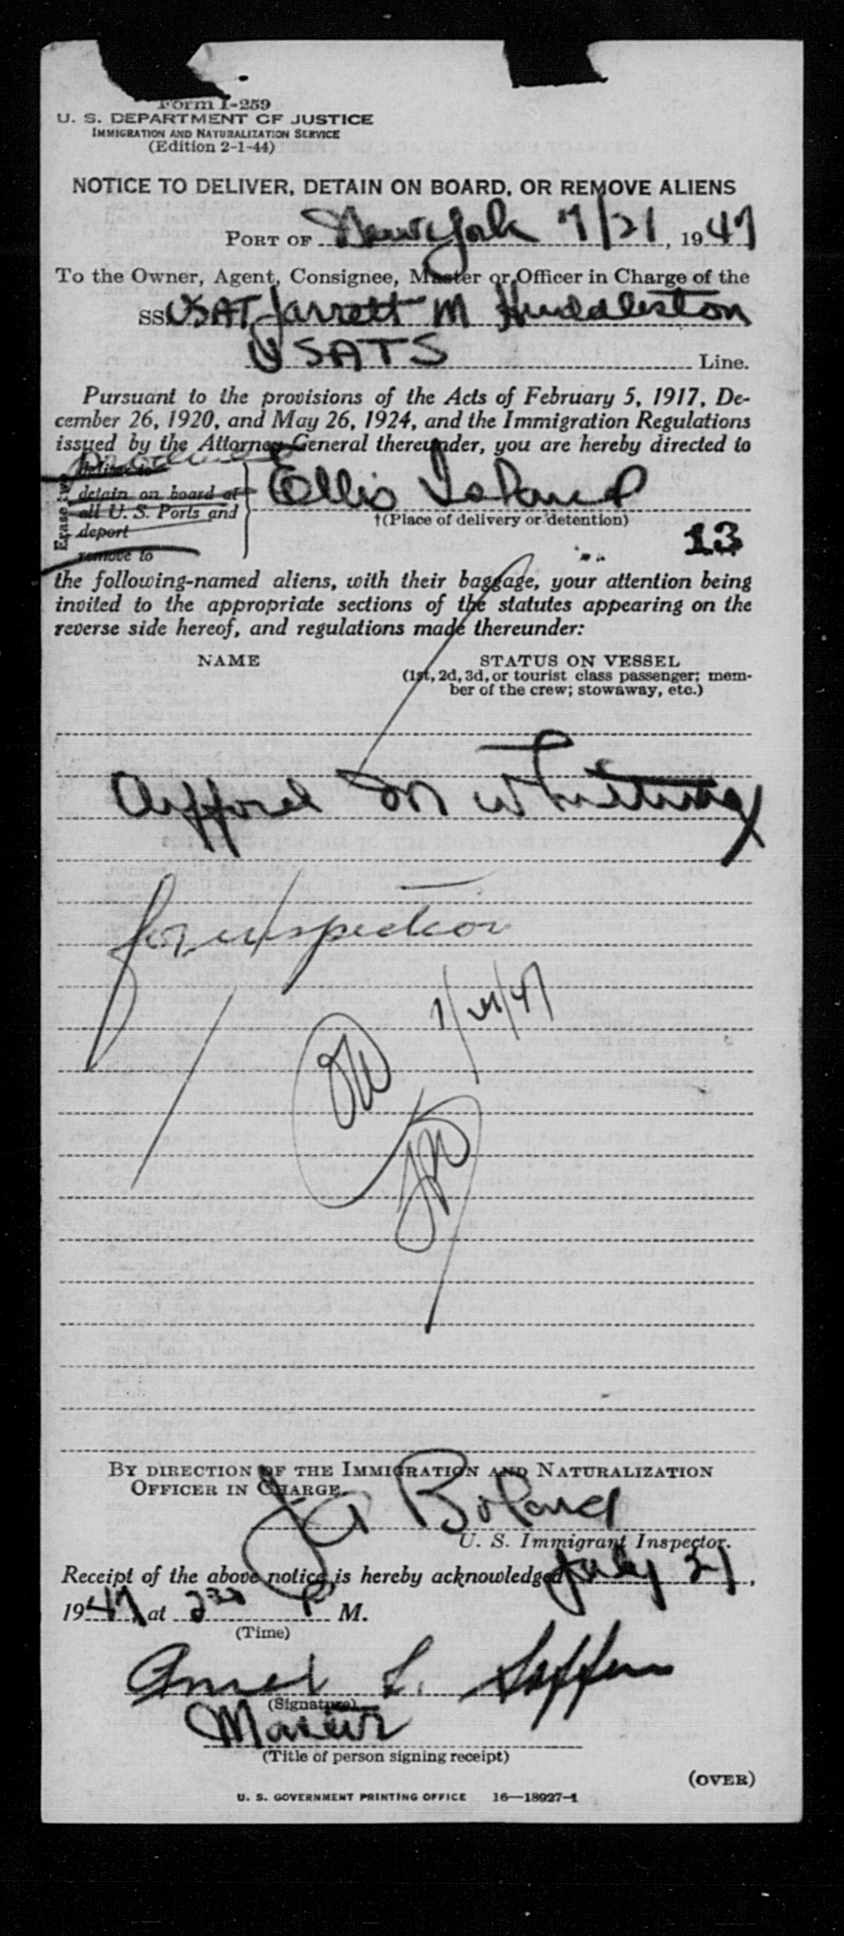 Form I-259
U. S. DEPARTMENT OF JUSTICE
IMMIGRATION AND NATURALIZATION SERVICE
(Edition 2-1-44)
NOTICE TO DELIVER, DETAIN ON BOARD, OR REMOVE ALIENS
PORT OF New York 7/21, 1947
To the Owner, Agent, Consignee, Master or Officer in Charge of the
SS USAT Jarrett M Huddleston
USATS Line.
Pursuant to the provisions of the Acts of February 5, 1917, De-
cember 26, 1920, and May 26, 1924, and the Immigration Regulations
issued by the Attorney General thereunder, you are hereby directed to
Erase two
deliver to
detain on board at
all U. S. Ports and
deport
remove to
Ellis Island
†(Place of delivery or detention)
13
the following-named aliens, with their baggage, your attention being
invited to the appropriate sections of the statutes appearing on the
reverse side hereof, and regulations made thereunder:
NAME
STATUS ON VESSEL
(1st, 2d, 3d, or tourist class passenger; mem-
ber of the crew; stowaway, etc.)
M Whitting
for inspection
7/21/47
BY DIRECTION OF THE IMMIGRATION AND NATURALIZATION
OFFICER IN CHARGE.
J A Boland
U. S. Immigrant Inspector.
Receipt of the above notice is hereby acknowledged July 21,
1947, at 230 P M.
(Time)
L.
(Signature)
Master
(Title of person signing receipt)
(OVER)
U. S. GOVERNMENT PRINTING OFFICE 16—18927-1